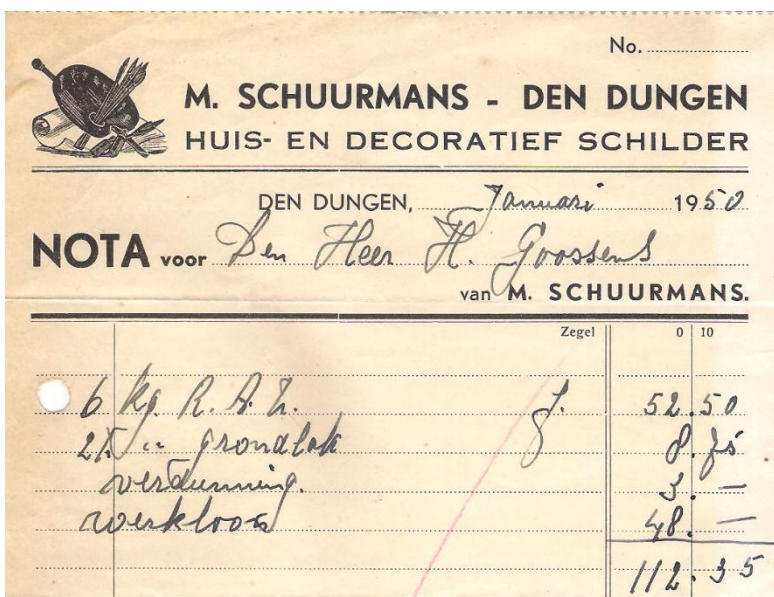 No.
M. SCHUURMANS - DEN DUNGEN
HUIS- EN DECORATIEF SCHILDER
DEN DUNGEN, Januari 1950
NOTA voor Den Heer H. Goossens
van M. SCHUURMANS.
Zegel 0 10
6 kg. R. A. f. 52.50
2½ " grondlak 8.75
verdunning. 3. —
werkloon 48. —
112.35